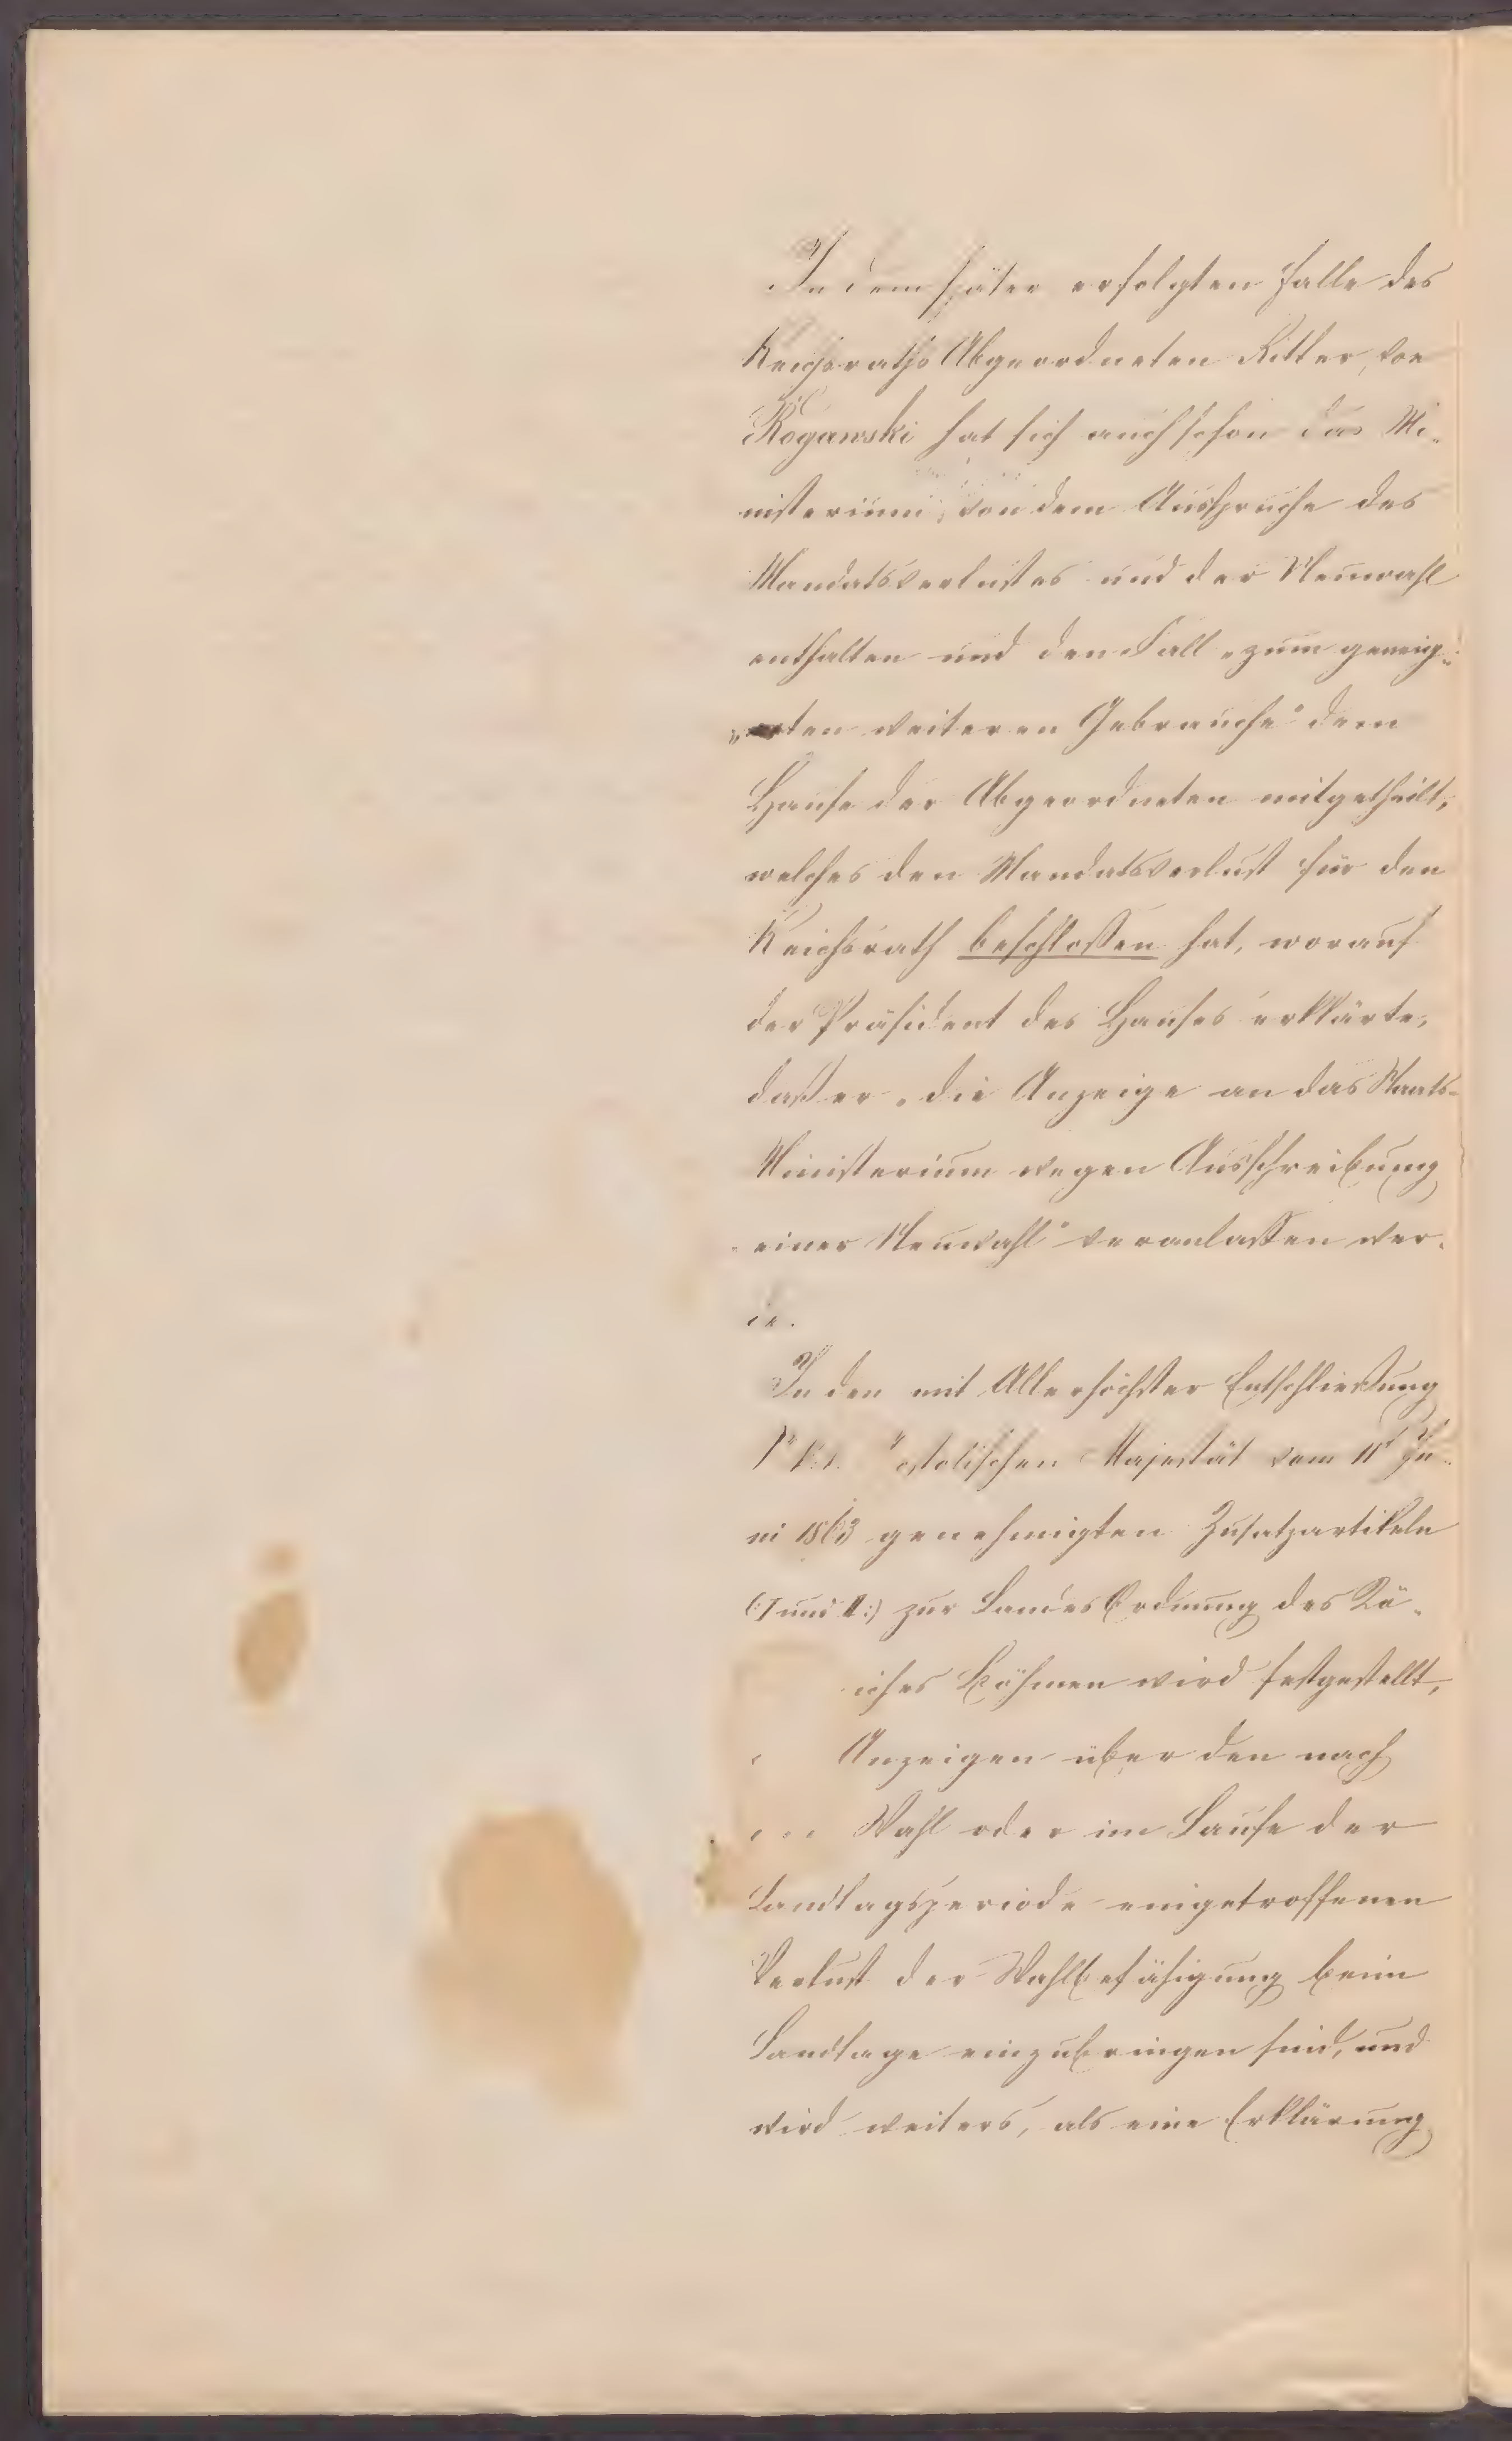 In dem später erfolgten Falle des
Reichsraths Abgeordneten Ritter von
Rogawski hat sich auch schon das Mi-
nisterium von dem Ausspruche des
Mandatsverlustes und der Neuwahl
enthalten und den Fall „zum geneig-
„ten weiteren Gebrauche“ dem
Hause der Abgeordneten mitgetheilt,
welches den Mandatsverlust für den
Reichsrath beschloßen hat, worauf
der Präsident des Hauses erklärte,
daß er „die Anzeige an das Staats-
Ministerium wegen Ausschreibung
einer Neuwahl“ veranlaßen wer-
de.
In den mit Allerhöchster Entschließung
ostolischen Majestät vom 11t Ju-
ni 1863 genehmigten Zusatzartikeln
(:I und II:) zur Landes Ordnung des Kö-
iches Böhmen wird festgestellt,
Anzeigen über den nach
Wahl oder im Laufe der
Landtagsperiode eingetroffenen
Verlust der Wahlbefähigung beim
Landtage einzubringen sind, und
wird weiters, als eine Erklärung